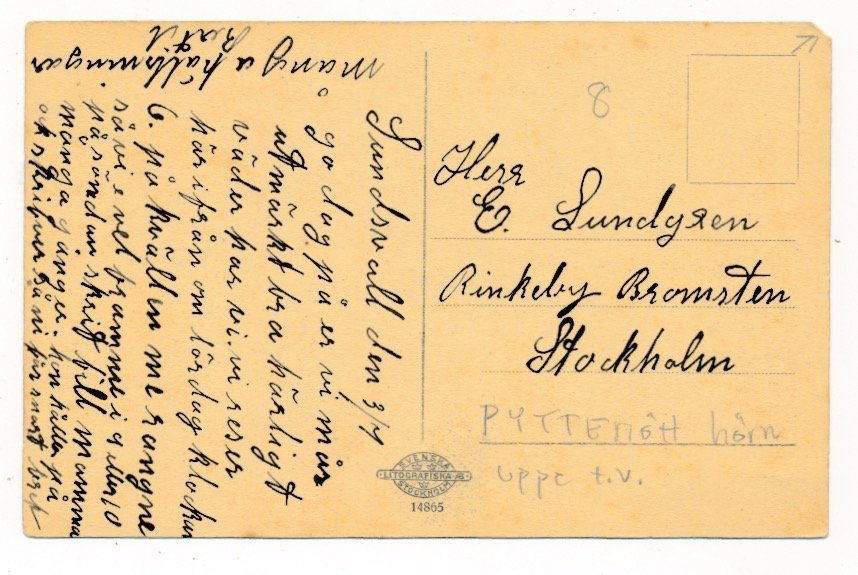 Sundsvall den 3/7
go dag på er vi mår
utmärkt bra härligt
väder har vi. vi reser
härifrån om lördag klockan
6. på kvällen me rangne
så vi e vel framme i 9 eller 10
på söndan skrif till mamma
många gånger. hon håller på
och skrifver så ni får snart bref
många hälsningar
Bertil
8
Herr
E. Lundgren
Rinkeby Bromsten
Stockholm
PYTTENÖTT hörn
uppe t.v.
SVENSKA
LITOGRAFISKA AB
STOCKHOLM
14865